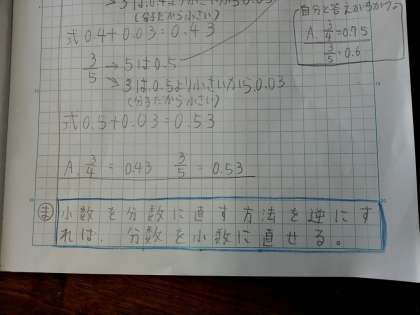 →3は0.4より小さいから0.03
(分子だから小さい)
式0.4+0.03=0.43
自分と答えがちがう。
A. 3/4=0.75
3/5=0.6
3/5→5は0.5
→3は0.5より小さいから0.03
(分子だから小さい)
式0.5+0.03=0.53
A. 3/4=0.43 3/5=0.53
ま 小数を分数に直す方法を逆にす
れば、分数を小数に直せる。